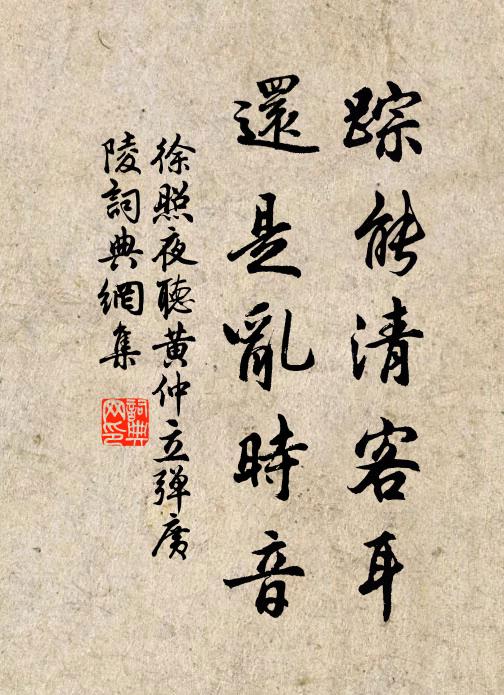 踪能清客耳
還是亂時音
徐照夜聽黄仲立彈廣
陵詞典網集
詞典網印